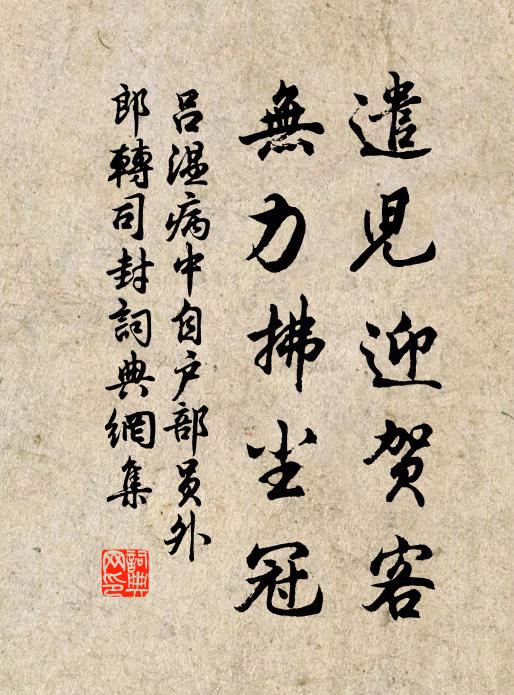 遣児迎贺客
無力拂尘冠
吕温病中自户部员外
郎轉司封詞典網集
詞典
网印